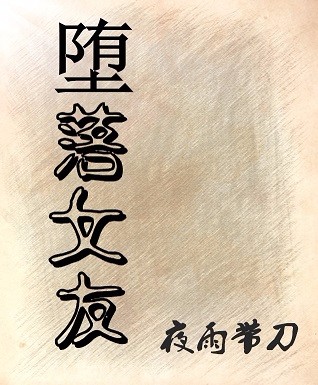 堕落女友
夜雨带刀